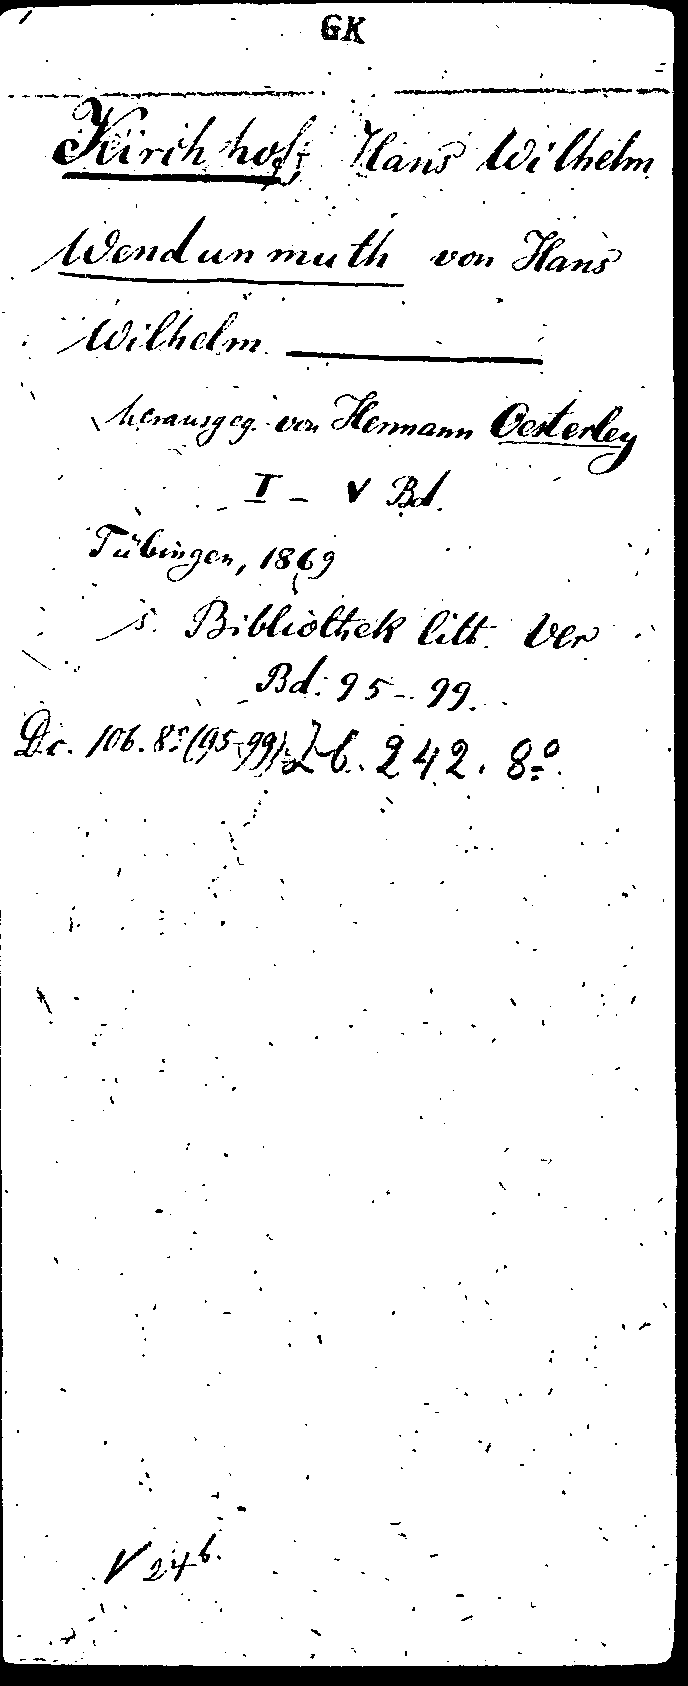 GK
Kirchhof, Hans Wilhelm
Wendunmuth von Hans
Wilhelm ———
herausgeg. von Hermann Oesterley
I – V Bd.
Tübingen, 1869
s. Bibliothek litt. Ver
Bd. 95–99.
Dc. 106. 8º (95-99). Zb. 242. 8º.
V 24b.